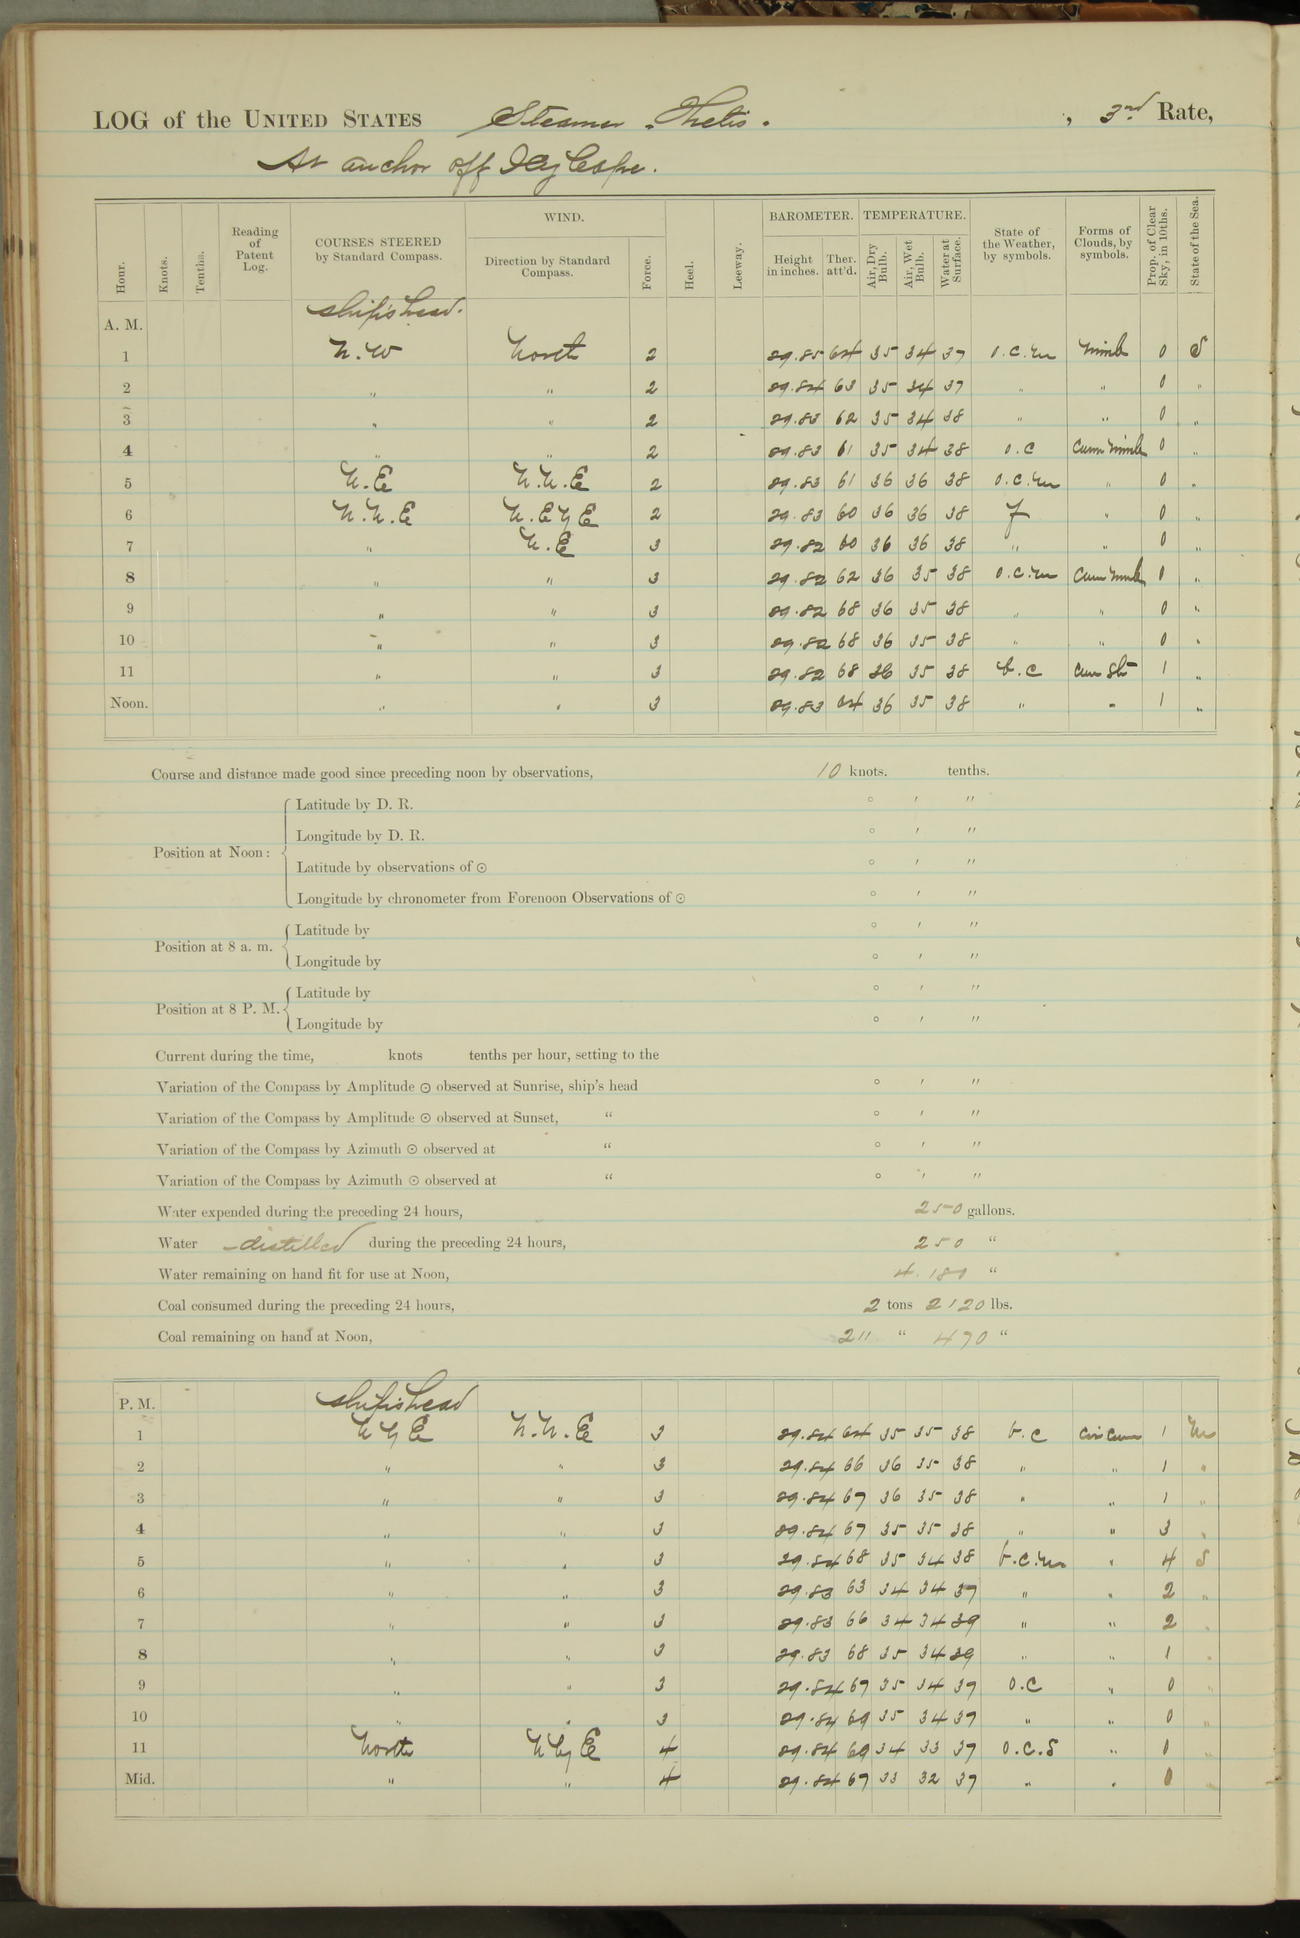 LOG of the UNITED STATES Steamer Thetis. , 3rd Rate,
At anchor off Icy Cape.
Hour. Knots. Tenths. Reading of Patent Log. COURSES STEERED by Standard Compass. WIND. Direction by Standard Compass. Force. Heel. Leeway. BAROMETER. Height in inches. Ther. att'd. TEMPERATURE. Air, Dry Bulb. Air, Wet Bulb. Water at Surface. State of the Weather, by symbols. Forms of Clouds, by symbols. Prop. of Clear Sky, in 10ths. State of the Sea.
A. M. ship's head.
1 N.W North 2 29.85 64 35 34 37 o.c.m Nimb 0 S
2 " " 2 29.84 63 35 34 37 " " 0 "
3 " " 2 29.83 62 35 34 38 " " 0 "
4 " " 2 29.83 61 35 34 38 o.c Cum Nimb 0 "
5 N.E N.N.E 2 29.83 61 36 36 38 o.c.m " 0 "
6 N.N.E N.E y E 2 29.83 60 36 36 38 f " 0 "
7 " N.E 3 29.82 60 36 36 38 " " 0 "
8 " " 3 29.82 62 36 35 38 o.c.m Cum Nimb 0 "
9 " " 3 29.82 68 36 35 38 " " 0 "
10 " " 3 29.82 68 36 35 38 " " 0 "
11 " " 3 29.82 68 36 35 38 b.c Cum St 1 "
Noon. " " 3 29.83 64 36 35 38 " " 1 "
Course and distance made good since preceding noon by observations, 10 knots. tenths.
Position at Noon: Latitude by D. R. ° ′ ″
Longitude by D. R. ° ′ ″
Latitude by observations of ⊙ ° ′ ″
Longitude by chronometer from Forenoon Observations of ⊙ ° ′ ″
Position at 8 a. m. Latitude by ° ′ ″
Longitude by ° ′ ″
Position at 8 P. M. Latitude by ° ′ ″
Longitude by ° ′ ″
Current during the time, knots tenths per hour, setting to the
Variation of the Compass by Amplitude ⊙ observed at Sunrise, ship's head ° ′ ″
Variation of the Compass by Amplitude ⊙ observed at Sunset, " ° ′ ″
Variation of the Compass by Azimuth ⊙ observed at " ° ′ ″
Variation of the Compass by Azimuth ⊙ observed at " ° ′ ″
Water expended during the preceding 24 hours, 250 gallons.
Water distilled during the preceding 24 hours, 250 "
Water remaining on hand fit for use at Noon, 4.180 "
Coal consumed during the preceding 24 hours, 2 tons 2120 lbs.
Coal remaining on hand at Noon, 211 " 470 "
P. M. ship's head
1 N y E N.N.E 3 29.84 64 35 35 38 b.c Cir Cum 1 M
2 " " 3 29.84 66 36 35 38 " " 1 "
3 " " 3 29.84 67 36 35 38 " " 1 "
4 " " 3 29.84 67 35 35 38 " " 3 "
5 " " 3 29.84 68 35 34 38 b.c.m " 4 S
6 " " 3 29.83 63 34 34 37 " " 2 "
7 " " 3 29.83 66 34 34 39 " " 2 "
8 " " 3 29.83 68 35 34 39 " " 1 "
9 " " 3 29.84 67 35 34 37 o.c " 0 "
10 " " 3 29.84 69 35 34 37 " " 0 "
11 North N by E 4 29.84 69 34 33 37 o.c.s " 0 "
Mid. " " 4 29.84 67 33 32 37 " " 0 "